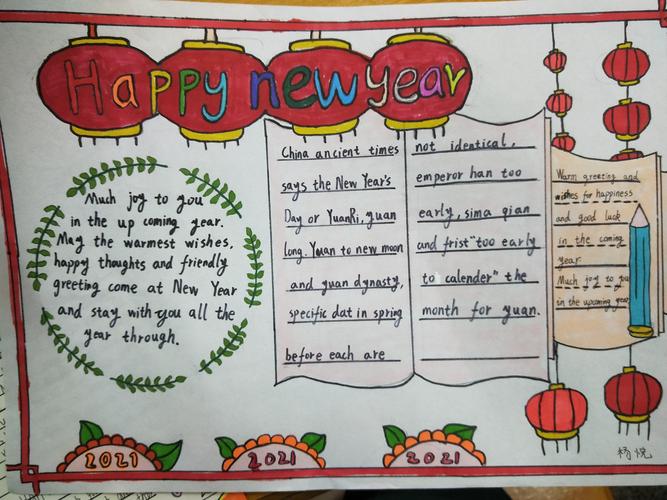 Happy new year
Much joy to you
in the up coming year.
May the warmest wishes,
happy thoughts and friendly
greeting come at New Year
and stay with you all the
year through.
China ancient times
says the New Year's
Day or YuanRi, yuan
long. Yuan to new moon
and yuan dynasty,
specific dat in spring
before each are
not identical,
emperor han too
early, sima qian
and frist "too early
to calender" the
month for yuan.
Warm greeting and
wishes for happiness
and good luck
in the coming
year
Much joy to you
in the upcoming year
2021
2021
2021
杨悦